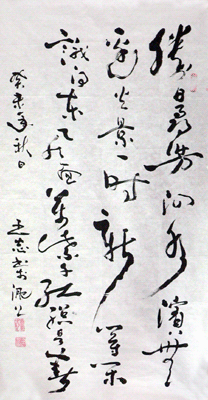 勝日尋芳泗水濱無
邊光景一時新等閒
識得東風面萬紫千紅總是春
癸未年秋日